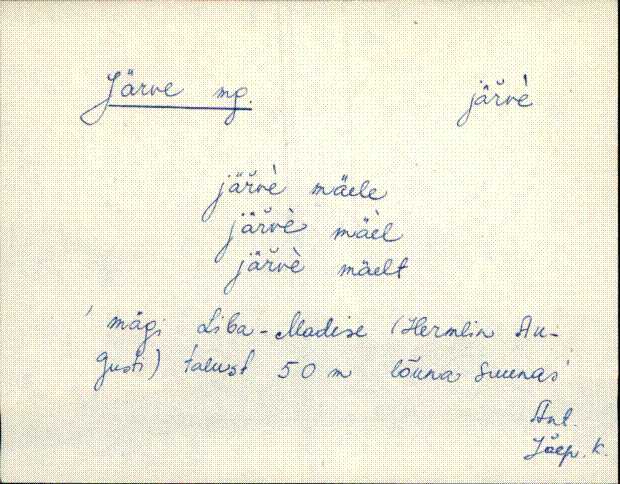 Järve mg. järvè
järvè mäele
järvè mäèl
järvè mäelt
' mägi Liba-Madise (Hermlin Au-
gusti) talust 50 m lõuna suunas'
Ant.
Jõep. K.